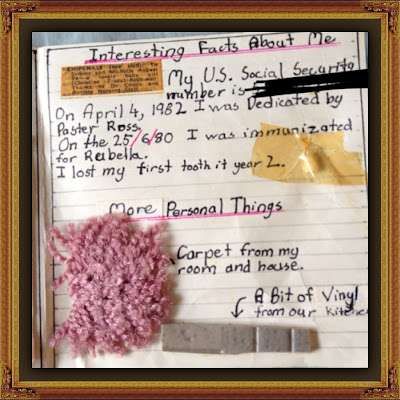 Interesting Facts About Me
My U.S. Social Security
number is
On April 4, 1982 I was Dedicated by
Paster Ross.
On the 25/6/80 I was immunizated
for Reubella.
I lost my first tooth it year 2.
More Personal Things
Carpet from my
room and house.
A Bit of Vinyl
from our Kitchen